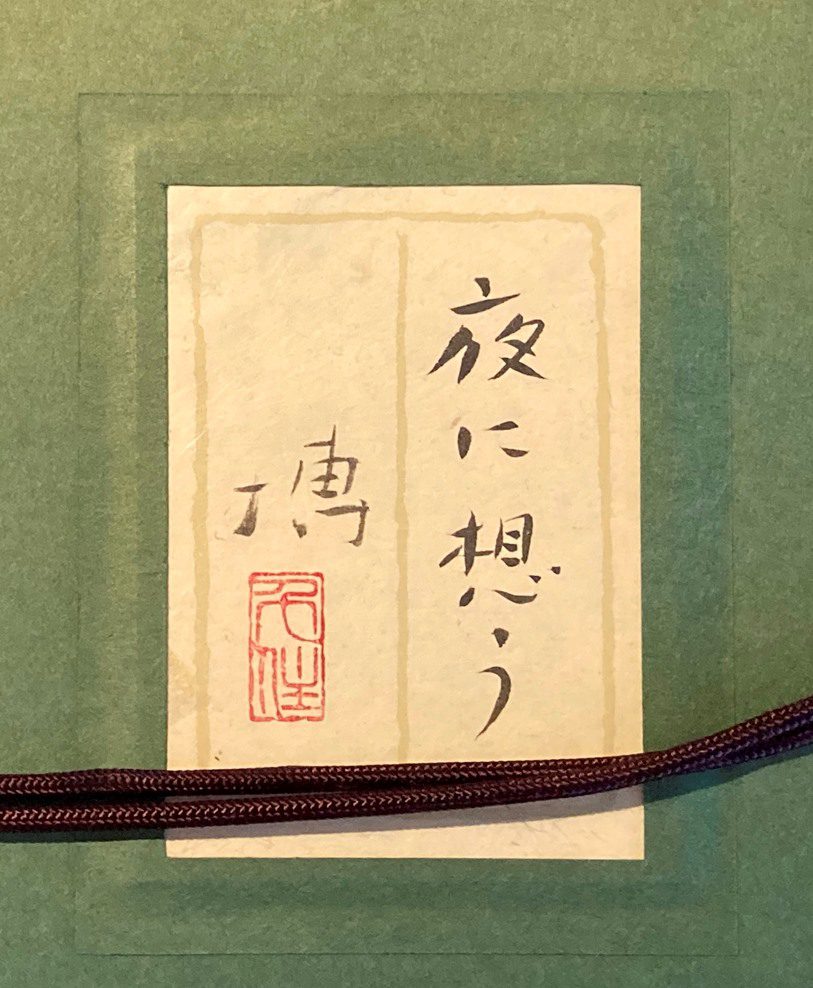 夜に想う
博